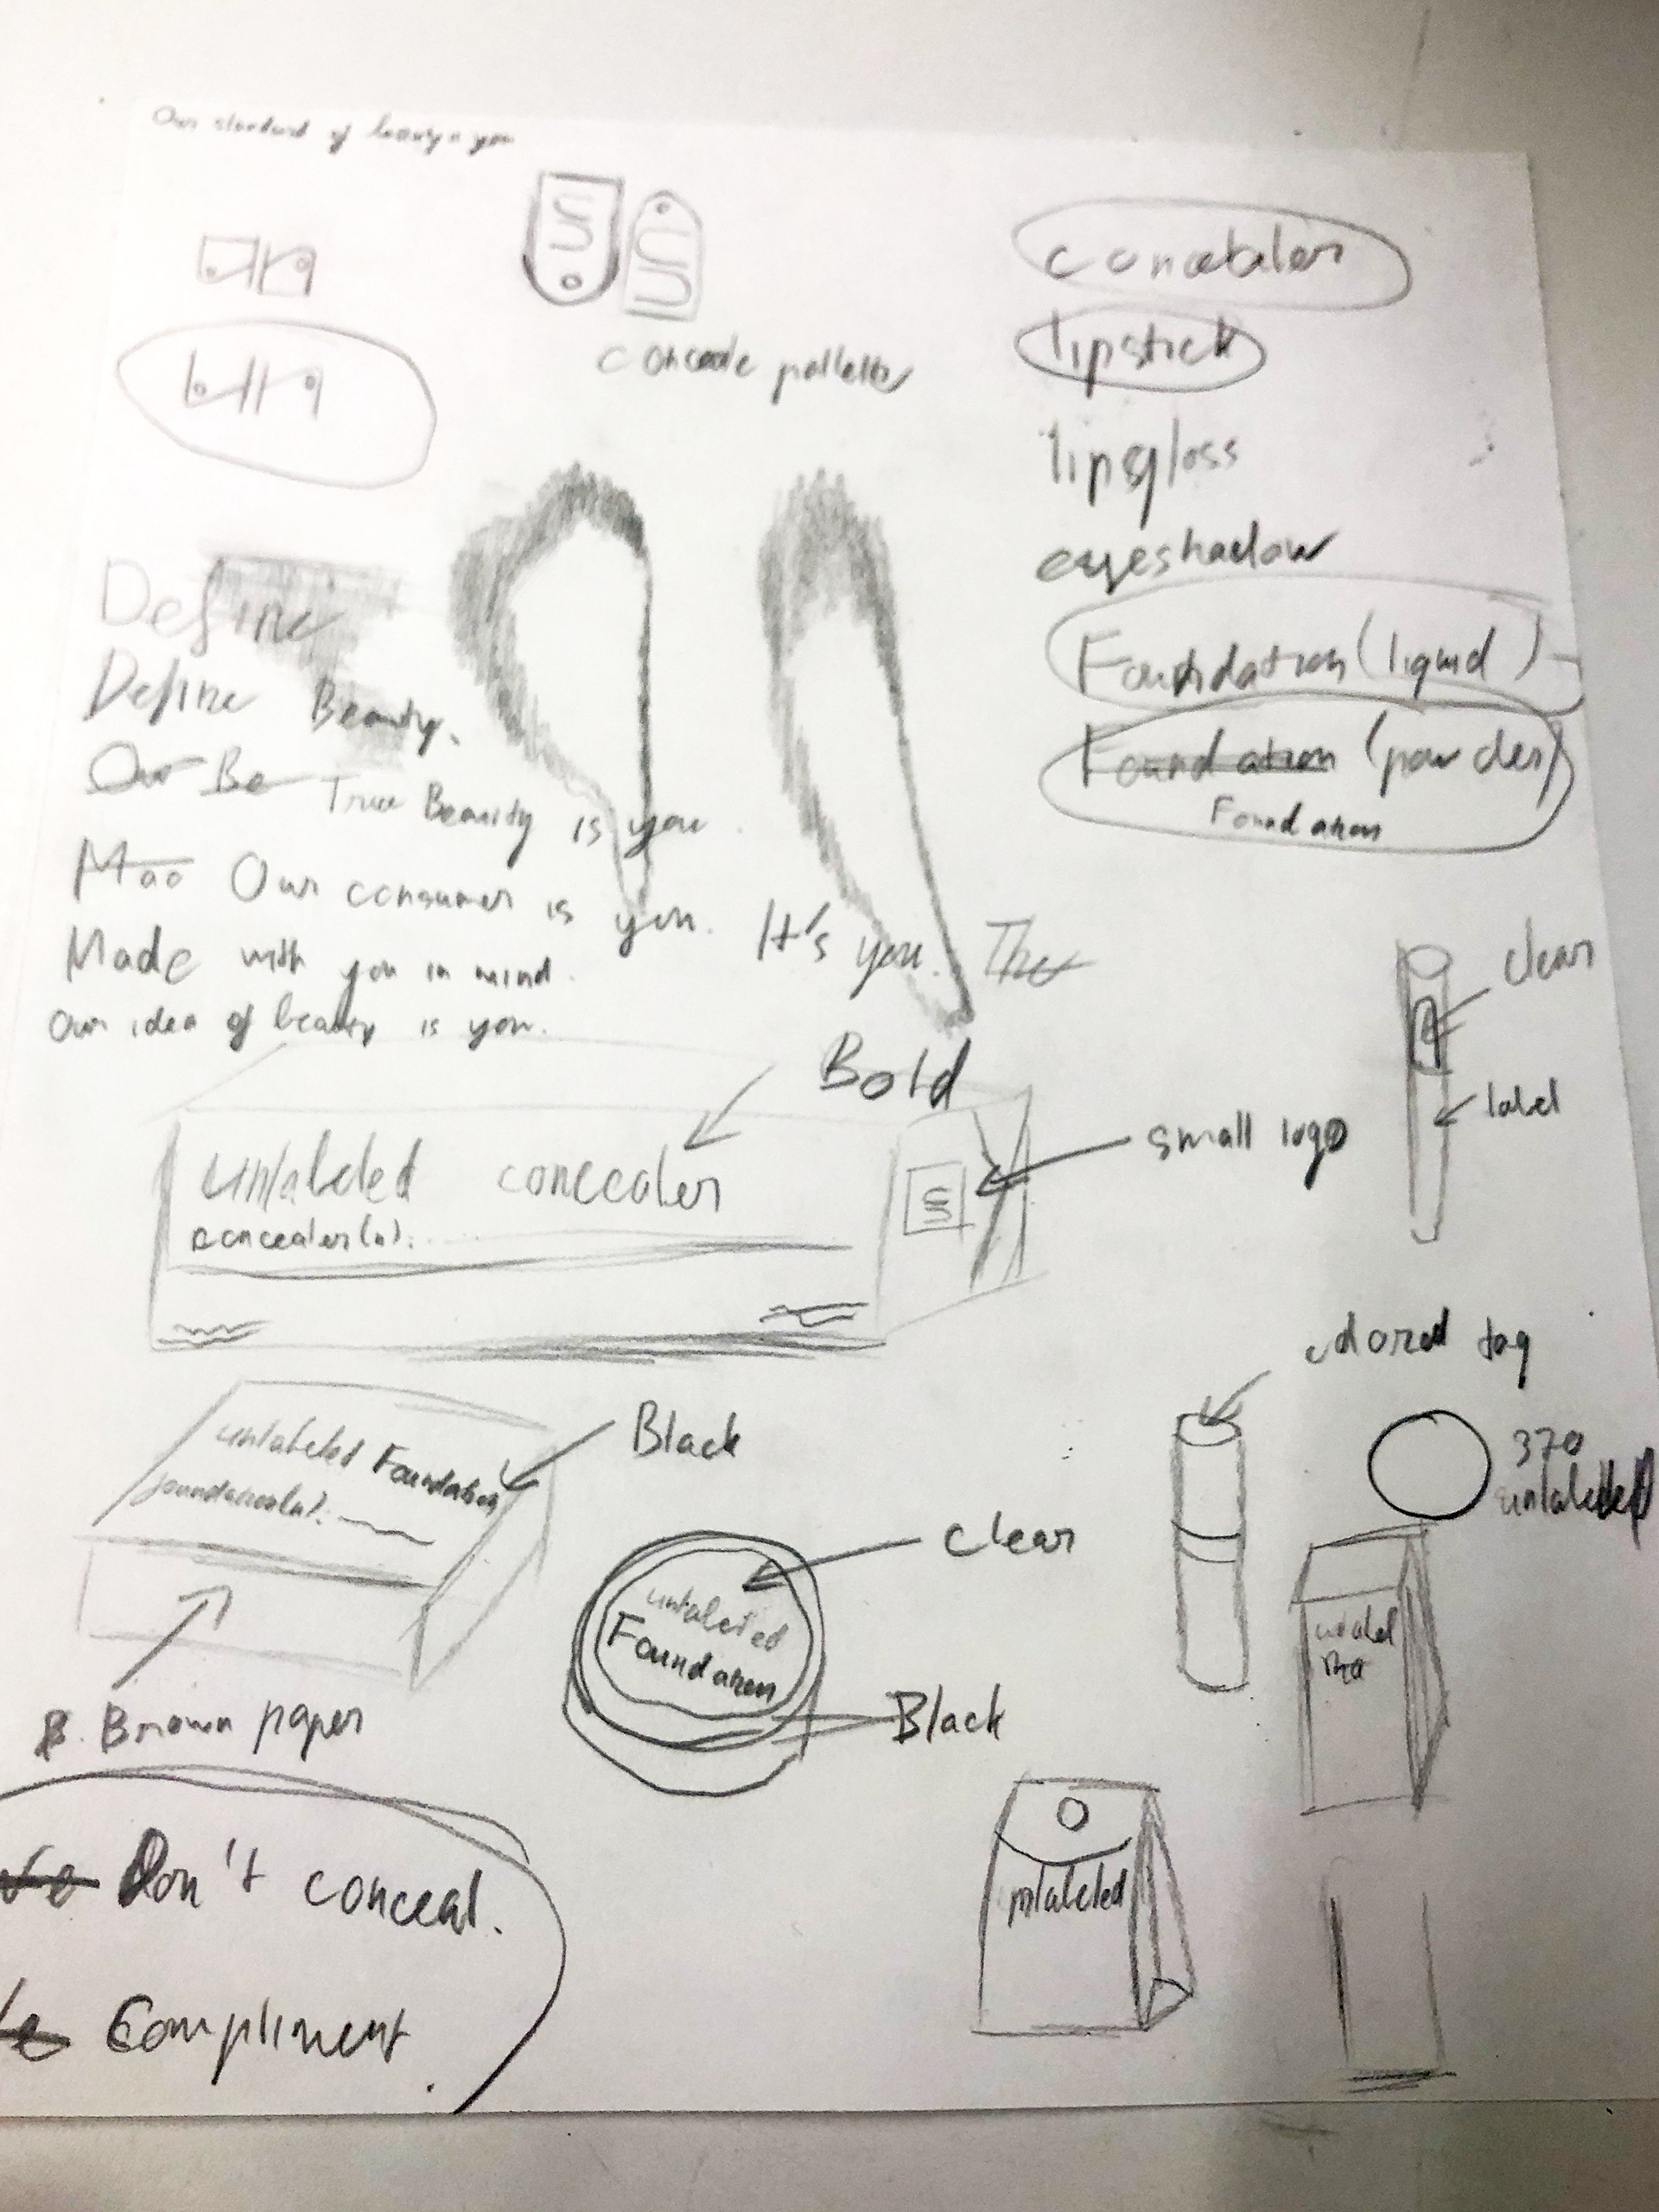 Our standard of beauty is you
concealer
lipstick
lipsgloss
eyeshadow
Foundation (liquid)
Foundation (powder)
Foundation
Define
Define Beauty.
Our Be True Beauty is you.
Our consumer is you. It's you. The
Made with you in mind.
Our idea of beauty is you.
clear
label
Bold
small logo
unlabeled concealer
concealer(n).
colored tag
370
unlabeled
Black
unlabeled Foundation
foundation(n).
clear
unlabeled
Foundation
Black
B. Brown paper
unlabeled
Don't conceal.
Compliment.